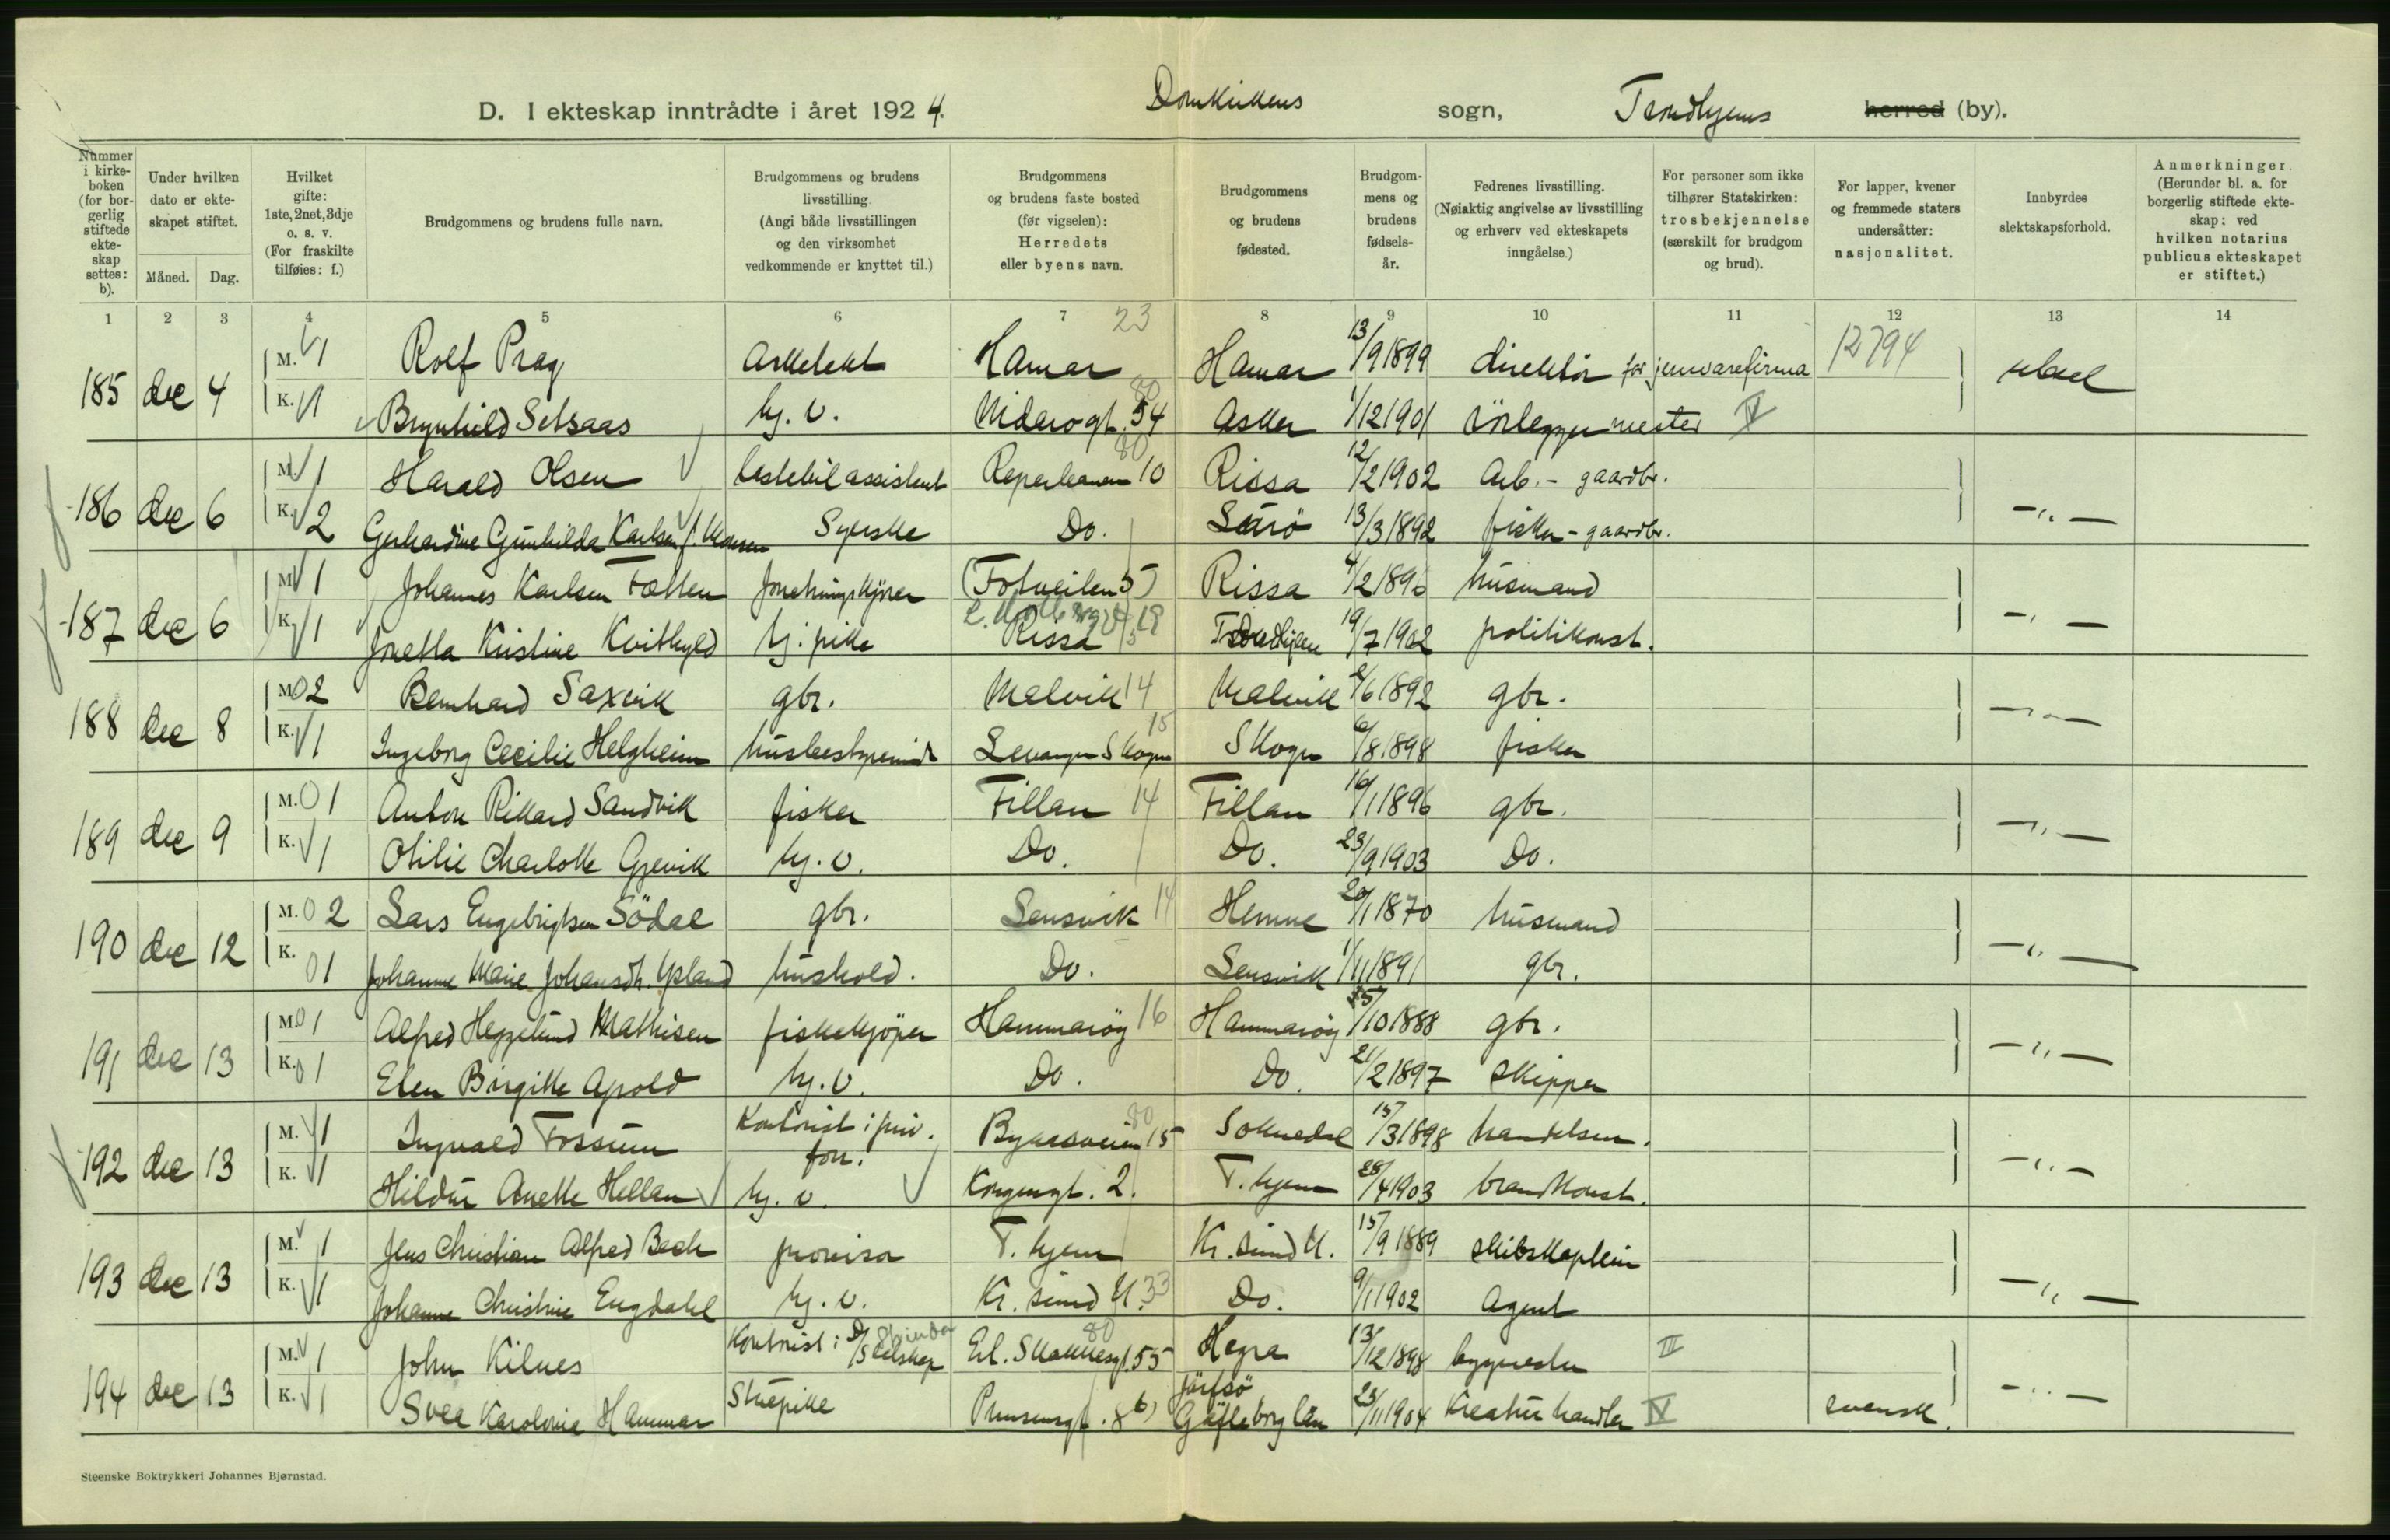 D. I ekteskap inntrådte i året 1924. Domkirkens sogn, Trondhjems herred (by).
Nummer i kirkeboken (for borgerlig stiftede ekteskap settes: b).
Under hvilken dato er ekteskapet stiftet.
Måned. Dag.
Hvilket gifte: 1ste, 2net, 3dje o. s. v. (For fraskilte tilføies: f.)
Brudgommens og brudens fulle navn.
Brudgommens og brudens livsstilling. (Angi både livsstillingen og den virksomhet vedkommende er knyttet til.)
Brudgommens og brudens faste bosted (før vigselen): Herredets eller byens navn.
Brudgommens og brudens fødested.
Brudgommens og brudens fødselsår.
Fedrenes livsstilling. (Nøiaktig angivelse av livsstilling og erhverv ved ekteskapets inngåelse.)
For personer som ikke tilhører Statskirken: trosbekjennelse (særskilt for brudgom og brud).
For lapper, kvener og fremmede staters undersåtter: nasjonalitet.
Innbyrdes slektskapsforhold.
Anmerkninger. (Herunder bl. a. for borgerlig stiftede ekteskap: ved hvilken notarius publicus ekteskapet er stiftet.)
1 2 3 4 5 6 7 8 9 10 11 12 13 14
23 12794
185 dec 4 M. 1 Rolf Prag Arkitekt Hamar Hamar 13/9 1899 direktør for jernvarefirma
K. 1 Brynhild Setsaas hj. v. Nidarosgt. 54 80 Asker 1/12 1901 rörleggermester IV
186 dec 6 M. 1 Harald Olsen lastebilassistent 10 80 Rissa 12/2 1902 Arb. - gaardbr.
K. 2 Gerhardine Gunhilda Karlsen Syerske Do. 13/3 1892 fisker - gaardbr. -"-
187 dec 6 M. 1 Johannes Karlsen Fallen forretningskjører Rissa 4/2 1896 husmand
K. 1 Jonetta Kristine Kvithyld hj. pike Rissa 15 Trondhjem 19/7 1902 politikonst. -"-
188 dec 8 M. 2 Bernhard Saxvik gbr. Malvik 14 Malvik 2/6 1892 gbr.
K. 1 Ingeborg Cecilie Helgheim Levanger Skogn 15 Skogn 6/8 1898 fisker -"-
189 dec 9 M. 1 Anton Rikard Sandvik fisker Fillan 14 Fillan 16/1 1896 gbr.
K. 1 Otilie Charlotte Gjevik hj. v. Do. Do. 23/9 1903 Do. -"-
190 dec 12 M. 2 Lars Engebrigtsen Södal gbr. Lensvik 14 Hemne 20/1 1870 husmand
K. 1 Johanne Marie Johansdt. Ysland hushold. Do. Lensvik 1/11 1891 gbr. -"-
191 dec 13 M. 1 Alfred Heggelund Mathisen fiskekjøper Hammarøy 16 Hammarøy 25/10 1888 gbr.
K. 1 Elen Birgitte Apold hj. v. Do. Do. 21/2 1897 skipper -"-
192 dec 13 M. 1 Ingvald Fossum Kontorist i priv. forr. Byaasveien 15 80 Soknedal 15/3 1898 handelsm.
K. 1 Hildur Anette Hellan hj. v. Kongensgt. 2. T. hjem 28/4 1903 brandkonst. -"-
193 dec 13 M. 1 Jens Christian Alfred Bech provisor T. hjem Kr. sund N. 15/9 1889 skibskaptein
K. 1 Johanne Christine Engdahl hj. v. Kr. sund N. 33 Do. 9/1 1902 Agent -"-
194 dec 13 M. 1 John Kilnes Kontorist i D/S selskap Erl. Skakkesgt. 55 80 Hegra 13/12 1898 byggmester III
K. 1 Svea Karolina Hammar Stuepike Prinsensgt. 8 b) Järfsö Gäfleborg län 23/11 1904 Kreaturhandler IV svensk. -"-
Steenske Boktrykkeri Johannes Bjørnstad.